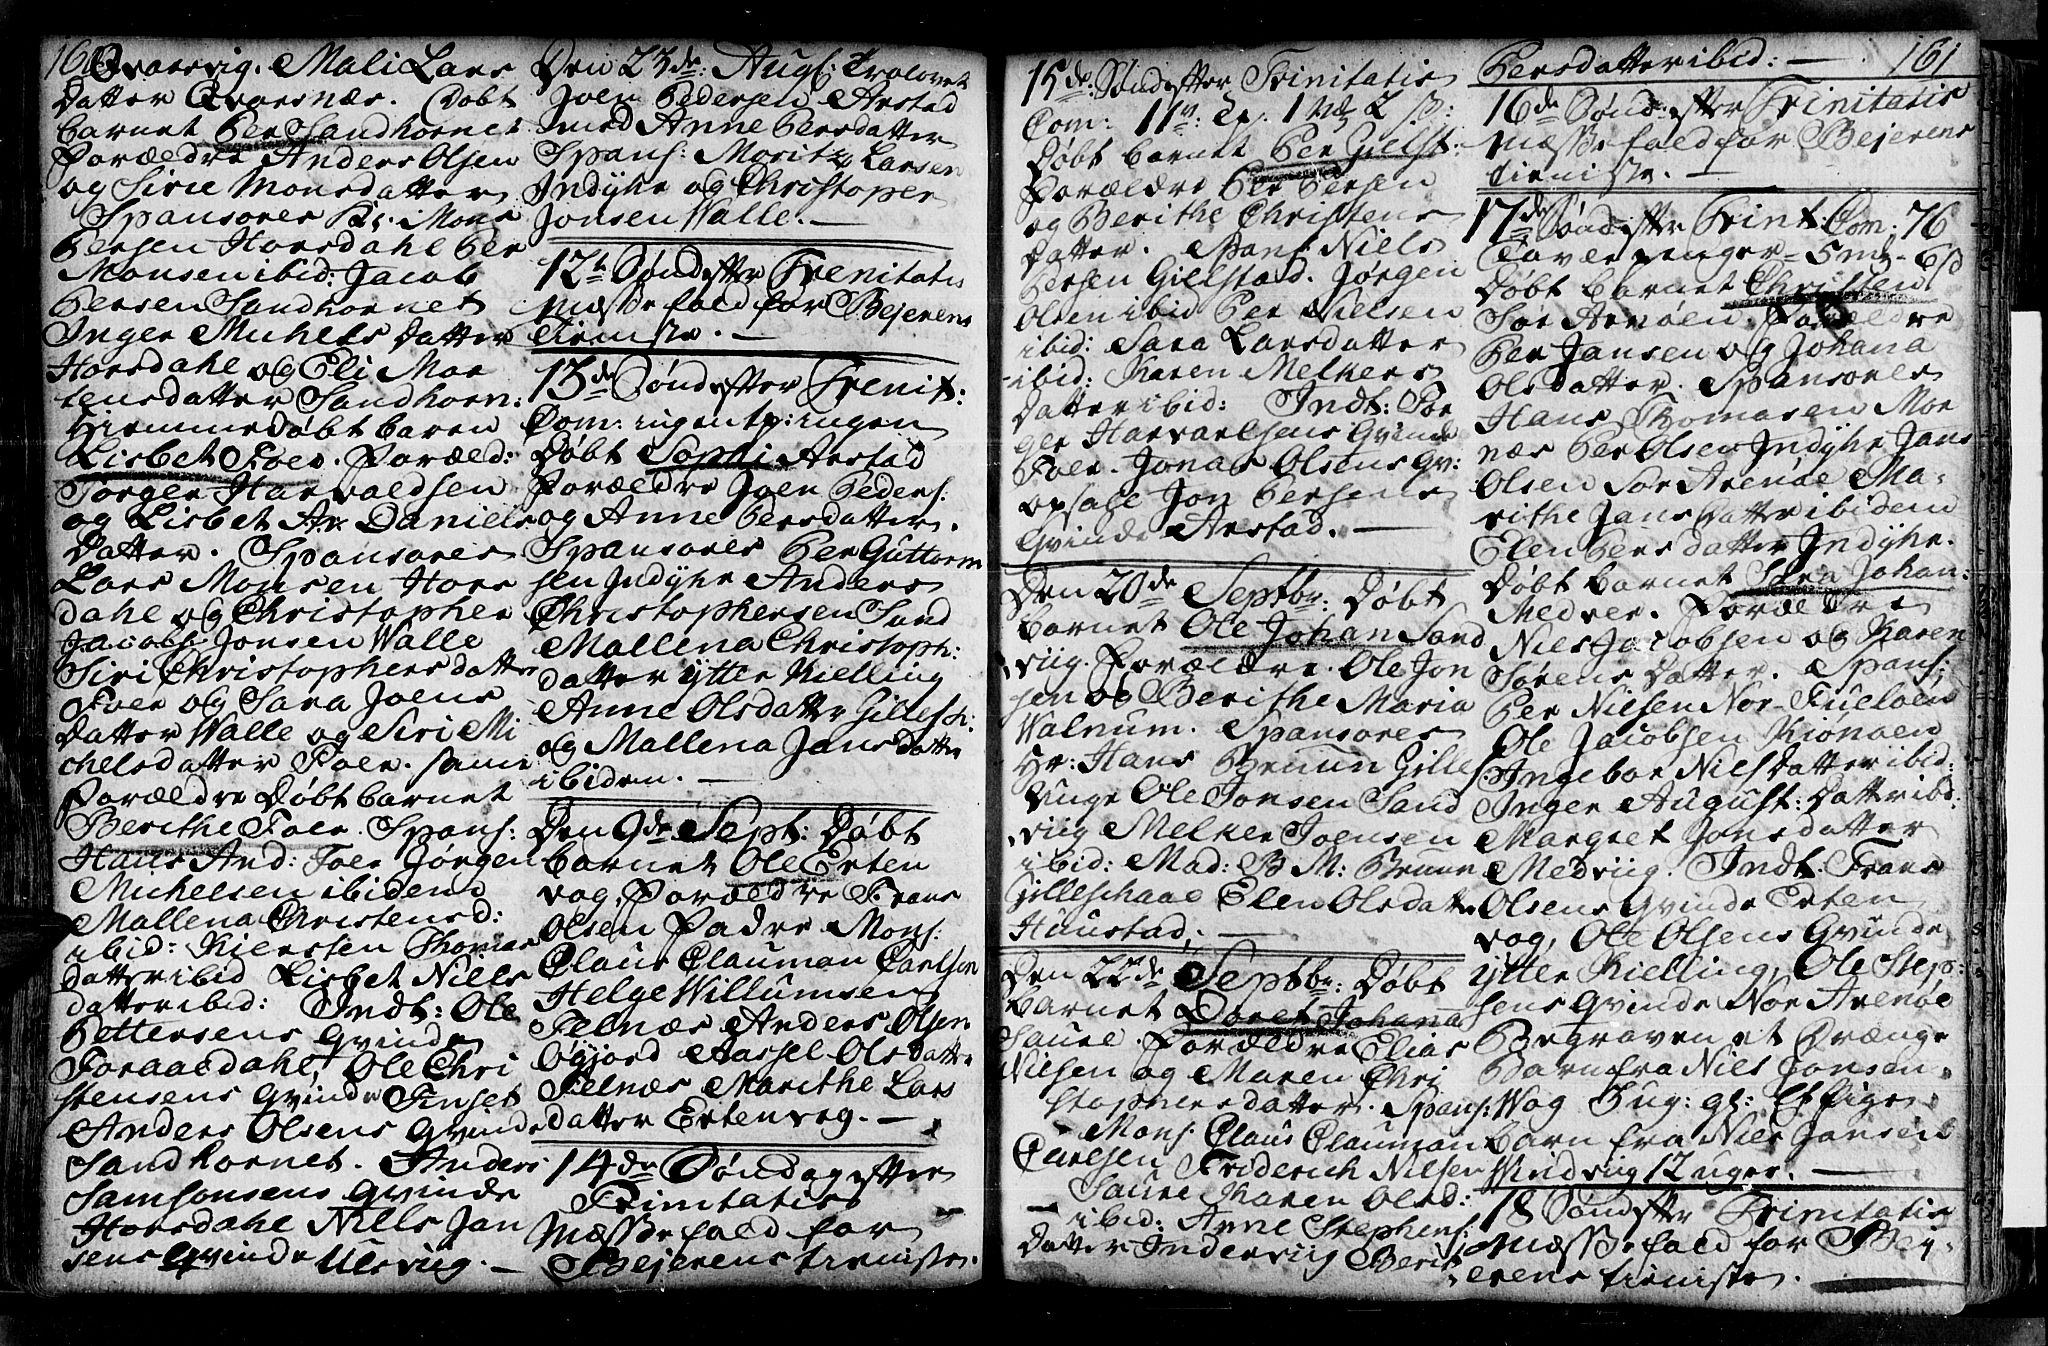 160
Qvarsvig. Mali Lars
Datter Qvarsnæs. Døbt
barnet Per Sandhornet
Forældre Anders Olsen
og Siric Monsdatter
Spansores Hr: Mons
Persen Horsdahl Per
Monsen ibid: Jacob
Persen Sandhornet
Inger Michels datter
Horsdahl og Eli Mor
tensdatter Sandhorn:
Hiemmedøbt baren
Lisbet Foer. Foræld:
Jørgen Harvaldsen
og Lisbet An Daniels
Datter. Spansores
Lars Monsen Hors
dahl og Christopher
Jacobs Jonsen Walle
Siri Christophersdatter
Foer og Sara Joens
datter Walle og Siri Mi
chelsdatter Foer. samme
Forældre Døbt barnet
Berithe Foer. Spans:
Hans And: Foer Jørgen
Michelsen ibidem
Mallena Christensd:
ibid: Kiersten Thomas
datter ibid Lisbet Niels
datter ibid: Indt: Ole
Pettersens qvinde
Foraasdahl, Ole Chri
stensens qvinde Finset
Anders Olsens qvinde
Sandhornet. Anders
Samsonsens qvinde
Horsdahl Niels Jan
sens qvinde Ulsviig. —
Den 23de: Augs: Trolovet
Joen Pedersen Arstad
med Anne Persdatter
Spans: Moritz Larsen
Indyhr og Christoper
Jonsen Walle. —
12te Sønd efter Trenitatis
Mæsse fald for Bejerens
tieniste. —
13de Sønd efter Trenit:
Com: ingen tp: ingen
Døbt Sophi Arstad
Forældre Joen Peders:
og Anne Persdatter.
Spansores Per Guttorm
sen Indyhr Anders
Christophersen Sand
Mallena Christoph:
datter ytter Kielling
Anne Olsdatter Gillesch:
og Mallena Jansdatter
ibidem. —
Den 9de Sept: Døbt
barnet Ole Erten
vog, Forældre Frans
Olsen Padre Mons:
Claus Clauman Carlson
Helge Willumsen
Felnæs Anders Olsen
Ogjord Aassel Olsdatter
Felnæs Marithe Lars
datter Ertenvog. —
14de Søndag efter
Trinitatis
Mæsse fald for
Bejerens tieniste.
15de Sønd efter Trinitatis
Døbt barnet Per Gielst:
Forældre Per Persen
og Berithe Christens
datter. Spans: Niels
Persen Gielstad. Jørgen
Olsen ibid Per Nielsen
ibid: Sara Larsdatter
ibid: Karen Melkers
datter ibid: Indt: Jør
gen Harvaelsens qvinde
Foer. Jonas Olsens qv:
opsall Jon Persens
qvinde Arstad. —
Den 20de Septbr: Døbt
barnet Ole Johan Sand
viig. Forældre. Ole Jon
sen og Berithe Maria
Walnum. Spansores
Hr: Hans Bruun Gilles
Unge Ole Jonsen Sand
viig Melker Joensen
ibid: Mad: B M: Bruun
Gilleschaal Elen Olsdatter
Huustad; —
Den 22de Septbr: Døbt
barnet Doret Johana
Saure. Forældre Elias
Nielsen og Maren Chri
stophersdatter. Spans:
Mons: Claus Clauman
Carlsen Friderich Nilsen
Saure Karen Olsd:
ibid: Anne Stephens:
datter Inderviig Berit
161
Persdatter ibid: —
16de Sønd efter Trinitatis
Mæsse fald for Bejerens
tieniste. —
17de Sønd efter Trint: Com: 76
Døbt barnet Christen
Sør Arnøen. Forældre
Per Jansen og Johana
Olsdatter. Spansores
Hans Thomasen Mor
næs Per Olsen Indyhr Jans
Olsen Sør Arnøe Ma-
rithe Jans datter ibidem
Elen Pers datter Indyhr.
Døbt barnet Sira Johan:
Medvei. Forældre
Niels Jacobsen og Karen
Sørens Datter. Spans:
Per Nielsen Nor-Fueløen
Ole Jacobsen Kiønøen
Ingebor Niels Datter ibid:
Inger August: Datt: ibid:
Margret Jonsdatter
Medviig. Indt: Frans
Olsens qvinde Erten
vog, Ole Olsens qvinde,
ytter Kielling, Ole Step:
sens qvinde Nor Arenøe
Begraven et Drænge
Barn fra Niels Jonsen
barn fra Niels Jansen
Windviig 12 uger. —
18 Sønd efter Trinitatis
Mæsse fald for Bej-
erens tieniste.